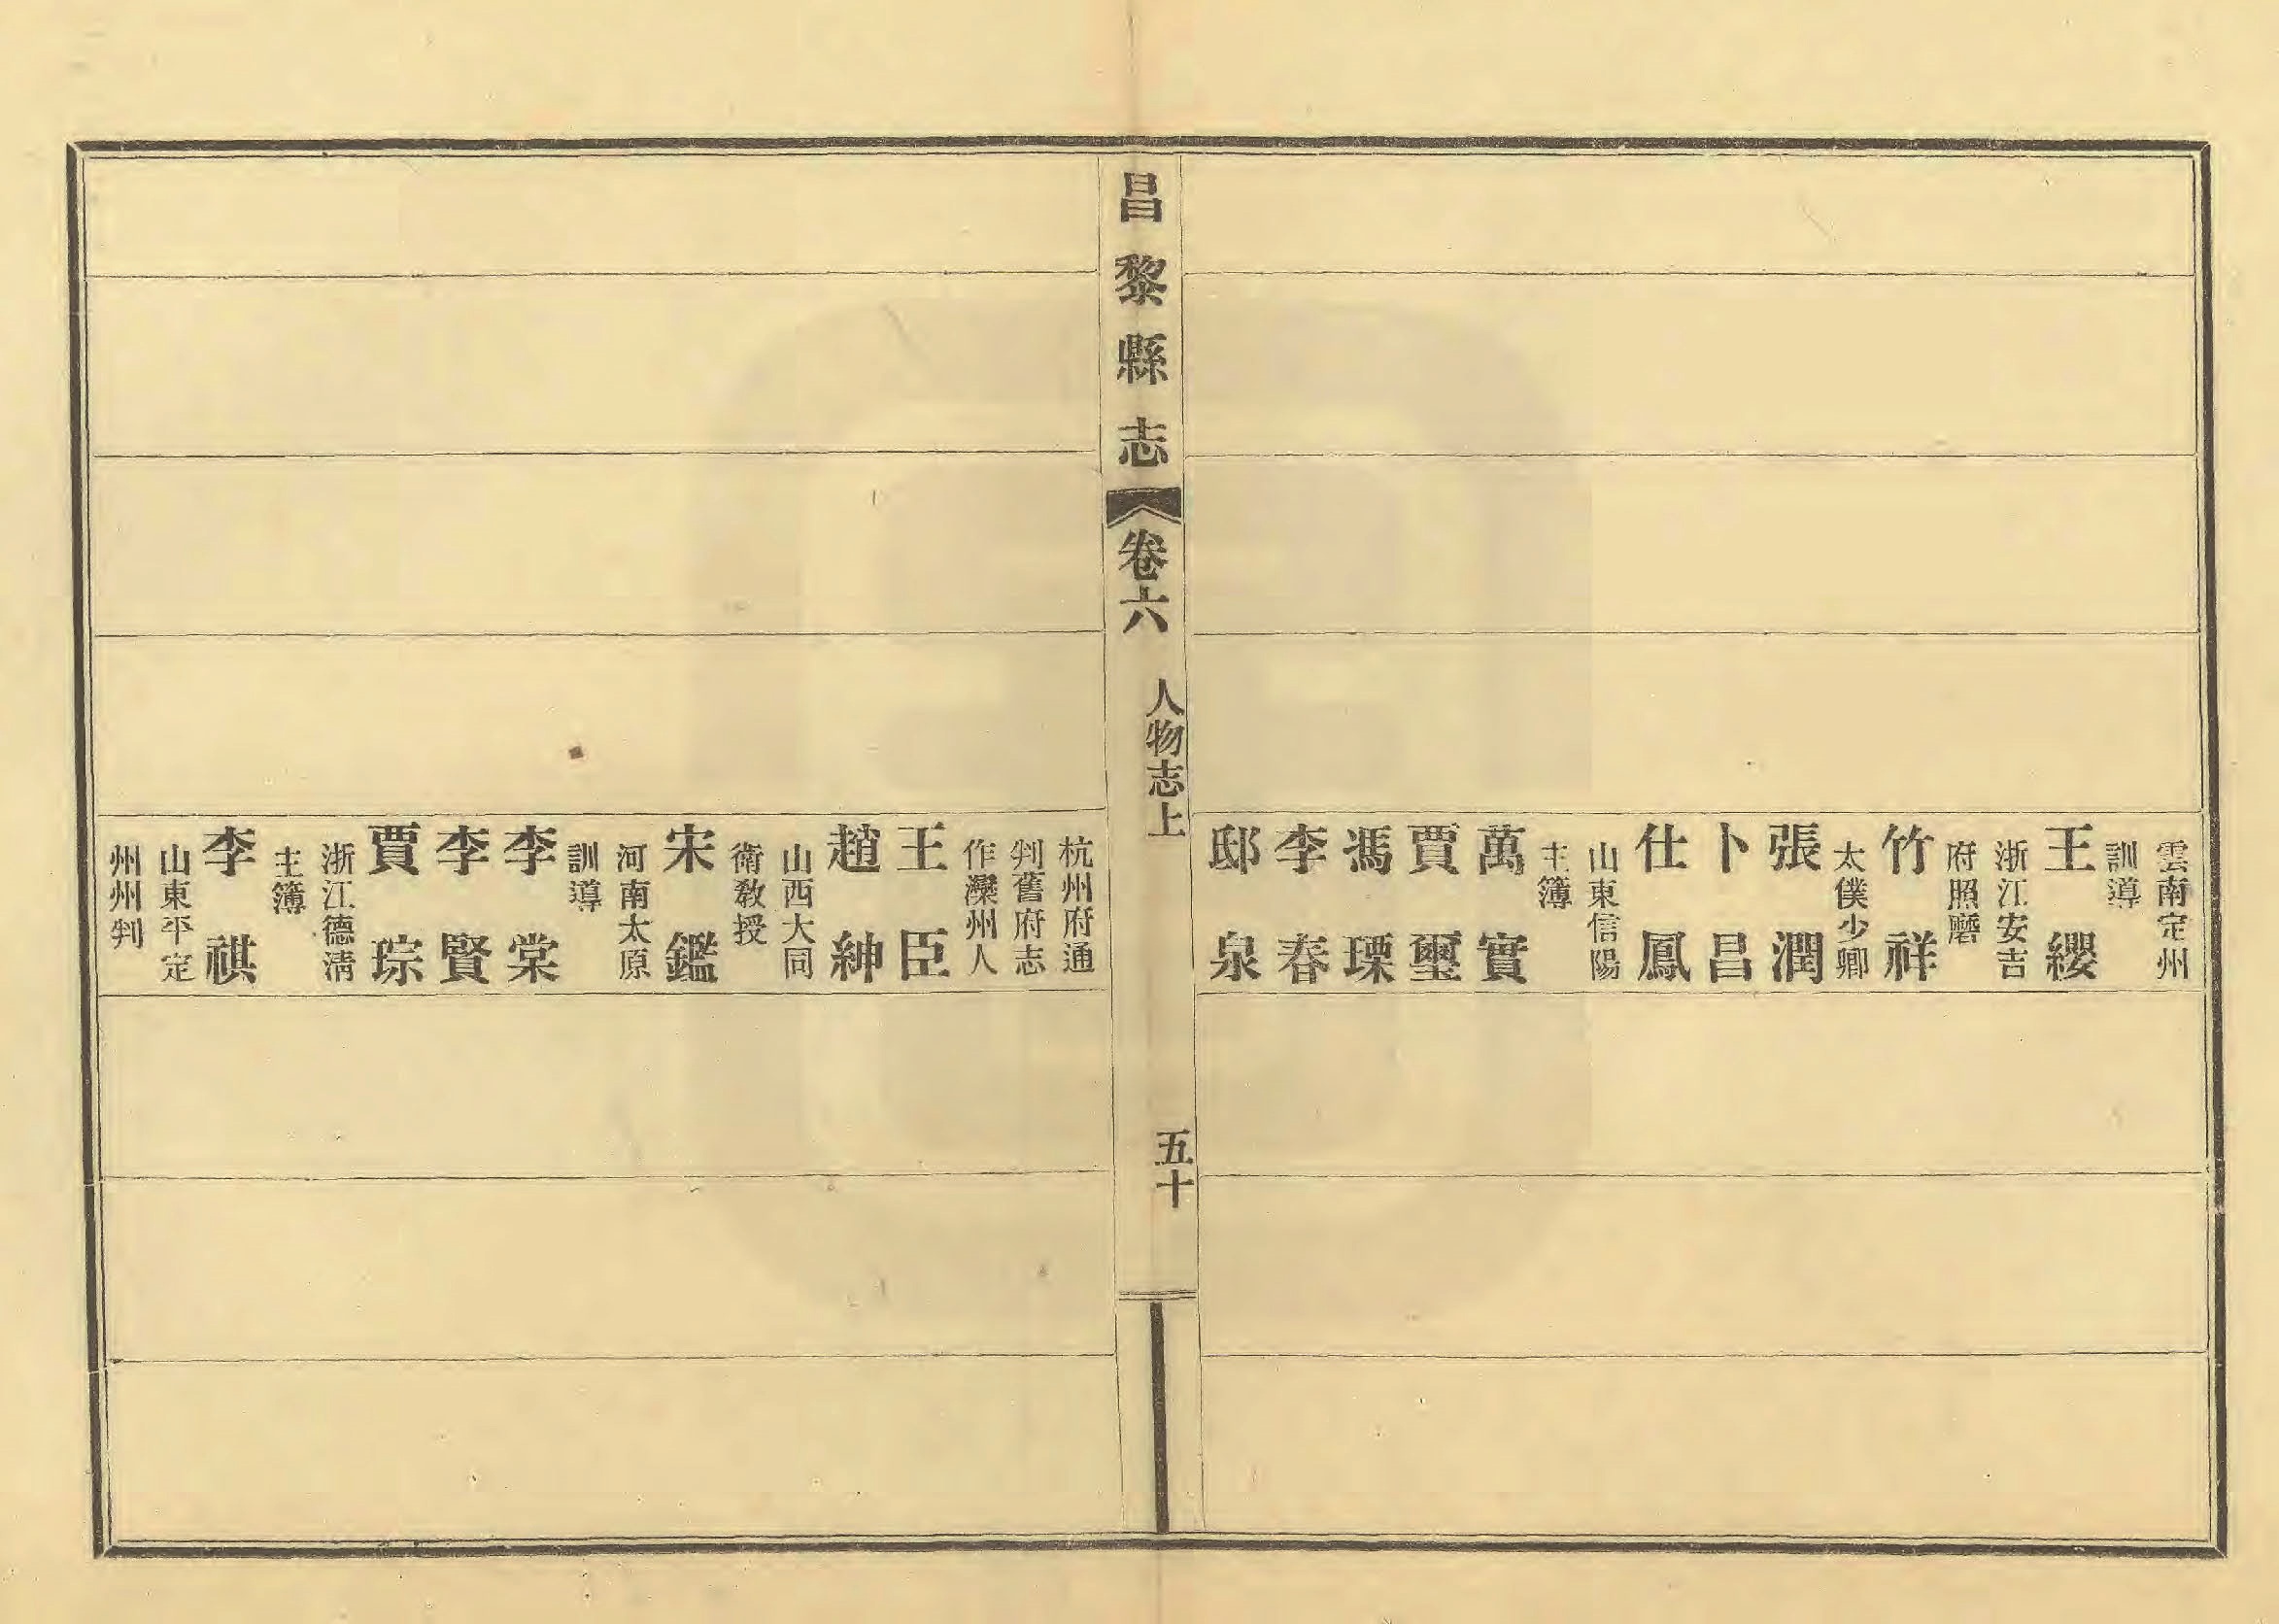 雲南定州
訓導
王纓
浙江安吉
府照磨
竹祥
太僕少卿
張潤
卜昌
仕鳳
山東信陽
主簿
萬實
賈璽
馮瑮
李春
邸泉
昌黎縣志
卷六
人物志上
五十
杭州府通
判舊府志
作灤州人
王臣
趙紳
山西大同
衛教授
宋鑑
河南太原
訓導
李棠
李賢
賈琮
浙江德清
主簿
李祺
山東平定
州州判